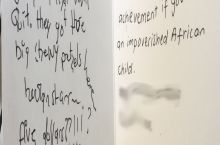 Quit, they got those
big chewy pretzels here
five dollars?!!!?
achievement if you
an impoverished African
child.